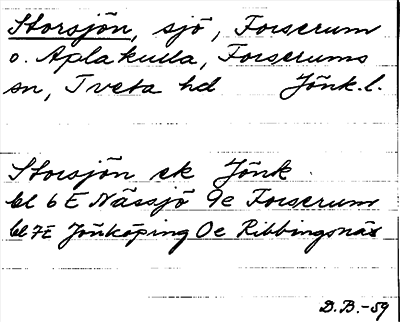 Storsjön, sjö, Forserum
o. Aplakulla, Forserums
sn, Tveta hd Jönk.l.
Storsjön ek Jönk
bl 6 E Nässjö 9e Forserum
bl 7E Jönköping 0e Ribbingsnäs
D.B.-59